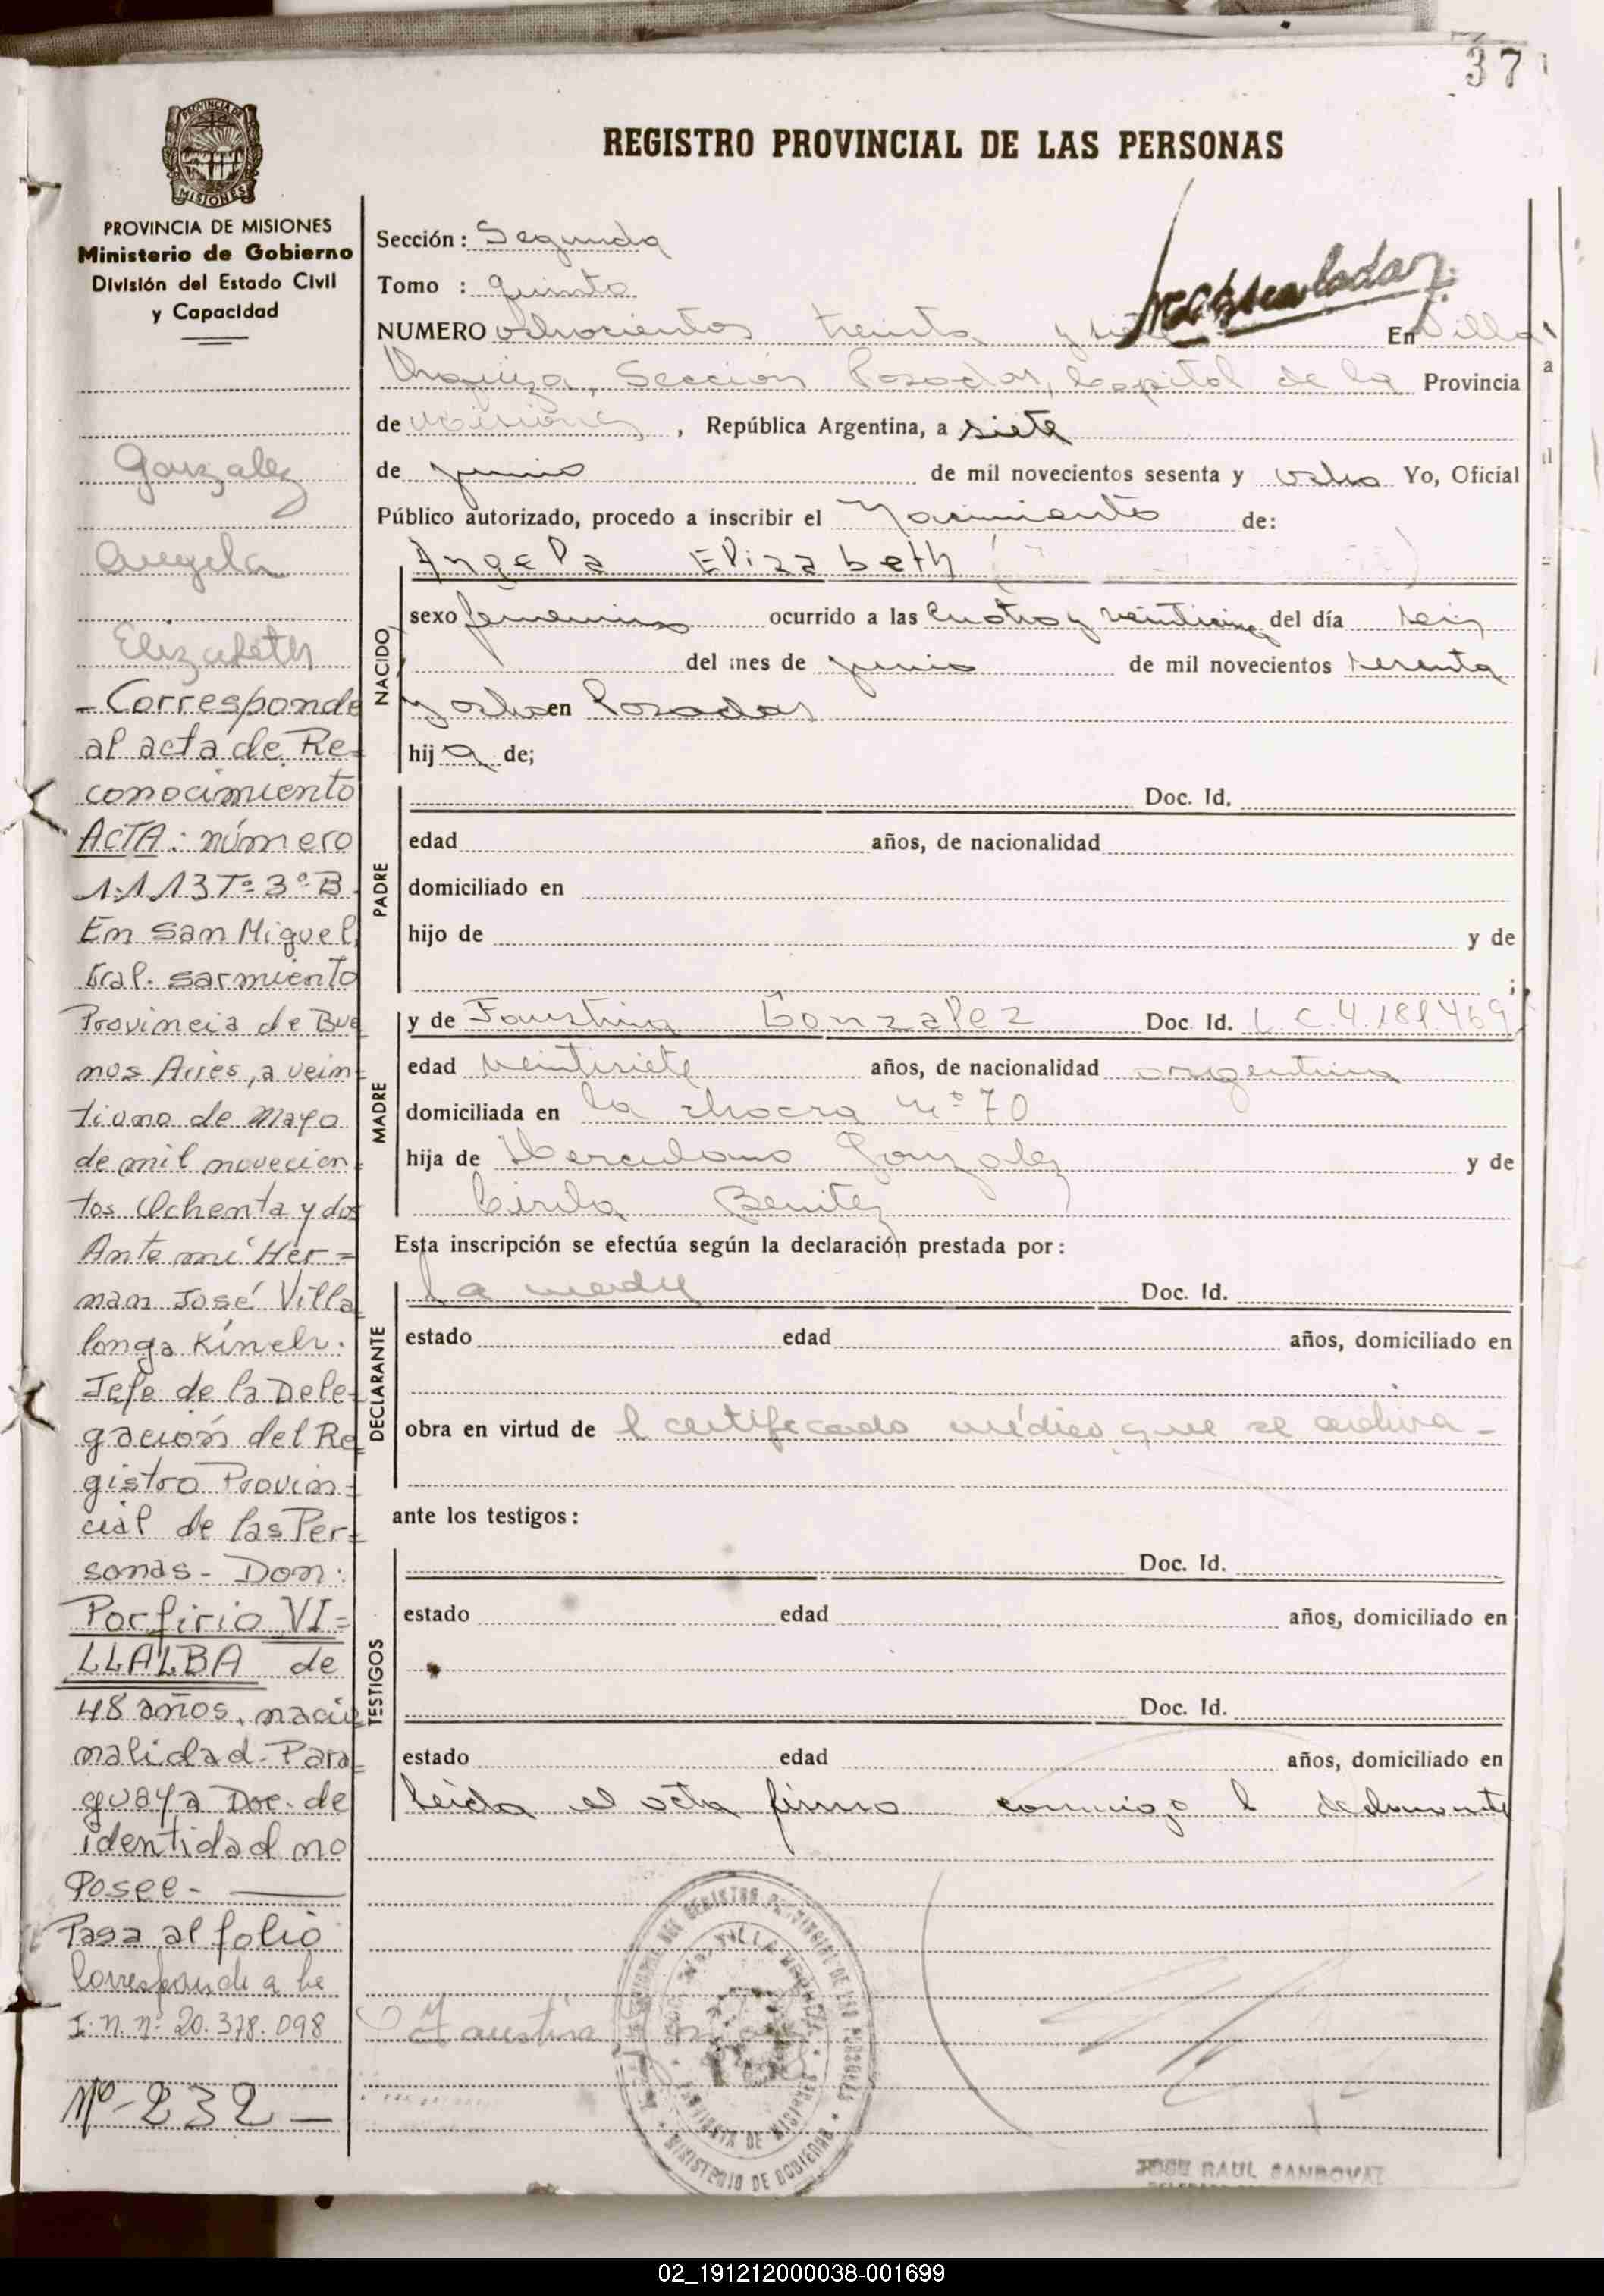 37
PROVINCIA DE
MISIONES
PROVINCIA DE MISIONES
Ministerio de Gobierno
División del Estado Civil
y Capacidad
Gonzalez
Angela
Elizabeth
- Corresponde
al acta de Re-
conocimiento
ACTA: número
1.113 Tº 3º B.
En San Miguel,
Gral. Sarmiento
Provincia de Bue
nos Aires, a vein-
tiuno de Mayo
de mil novecien-
tos Ochenta y dos
Ante mi Her=
nan José Villa
longa Kinch.
Jefe de la Dele-
gación del Re
gistro Provin-
cial de las Per-
sonas - Don:
Porfirio VI=
LLALBA de
48 años, nacio
nalidad - Para
guaya Doc. de
identidad no
Posee -
Pasa al folio
Corresponde a
I. n. nº 20.378.098
Nº - 232 -
REGISTRO PROVINCIAL DE LAS PERSONAS
Sección: Segunda
Tomo : Quinto
NUMERO ochocientos treinta y siete En Villa
Urquiza, Sección Posadas, Capital de la Provincia
de Misiones, República Argentina, a siete
de junio de mil novecientos sesenta y ocho Yo, Oficial
Público autorizado, procedo a inscribir el Nacimiento de:
Angela Elizabeth
NACIDO
sexo femenino ocurrido a las cuatro y veinticinco del día seis
del mes de junio de mil novecientos sesenta
y ocho en Posadas
hija de;
PADRE
Doc. Id.
edad años, de nacionalidad
domiciliado en
hijo de y de
;
MADRE
y de Faustina Gonzalez Doc. Id. L.C. 4.181.469
edad veintisiete años, de nacionalidad argentina
domiciliada en la chacra nº 70
hija de Herculano Gonzalez y de
Cirila Benitez
Esta inscripción se efectúa según la declaración prestada por:
DECLARANTE
La madre Doc. Id.
estado edad años, domiciliado en
obra en virtud de l certificado médico que se archiva -
ante los testigos:
TESTIGOS
Doc. Id.
estado edad años, domiciliado en
Doc. Id.
estado edad años, domiciliado en
Leida el acta firma conmigo l declarante
Faustina
PROVINCIA DE MISIONES
MINISTERIO DE GOBIERNO
JOSE RAUL SANDOVAL
02_191212000038-001699